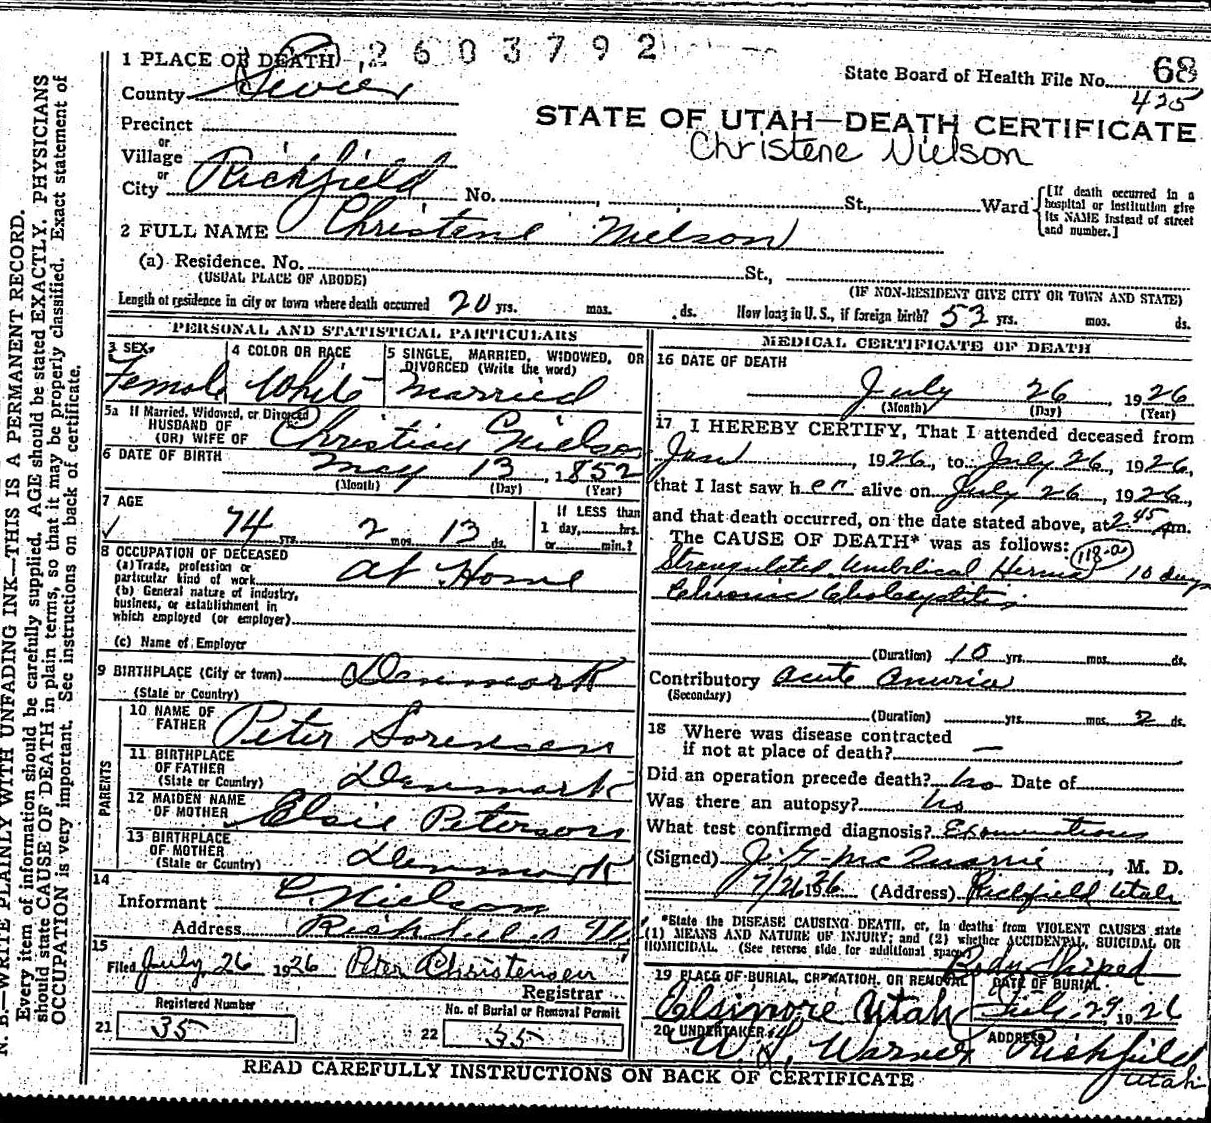 1 PLACE OF DEATH 2603792
State Board of Health File No. 68
425
County Sevier
STATE OF UTAH—DEATH CERTIFICATE
Christene Nielson
Precinct
or
Village
or
City Richfield No. , St., Ward
[If death occurred in a hospital or institution give its NAME instead of street and number.]
2 FULL NAME Christene Nielson
(a) Residence. No. St.,
(USUAL PLACE OF ABODE) (IF NON-RESIDENT GIVE CITY OR TOWN AND STATE)
Length of residence in city or town where death occurred 20 yrs. mos. ds. How long in U. S., if foreign birth? 53 yrs. mos. ds.
PERSONAL AND STATISTICAL PARTICULARS
3 SEX Female
4 COLOR OR RACE White
5 SINGLE, MARRIED, WIDOWED, OR DIVORCED (Write the word) Married
5a If Married, Widowed, or Divorced
HUSBAND OF
(OR) WIFE OF Christian Nielson
6 DATE OF BIRTH May 13, 1852
(Month) (Day) (Year)
7 AGE
74 yrs. 2 mos. 13 ds.
If LESS than
1 day, hrs.
or min.?
8 OCCUPATION OF DECEASED
(a) Trade, profession or
particular kind of work At Home
(b) General nature of industry,
business, or establishment in
which employed (or employer)
(c) Name of Employer
9 BIRTHPLACE (City or town) Denmark
(State or Country)
PARENTS
10 NAME OF FATHER Peter Sorensen
11 BIRTHPLACE OF FATHER (State or Country) Denmark
12 MAIDEN NAME OF MOTHER Elsie Peterson
13 BIRTHPLACE OF MOTHER (State or Country) Denmark
14
Informant C. Nielson
Address Richfield Ut
15
Filed July 26 1926 Peter Christensen
Registrar
Registered Number
21 35
No. of Burial or Removal Permit
22 35
MEDICAL CERTIFICATE OF DEATH
16 DATE OF DEATH
July 26 1926
(Month) (Day) (Year)
17 I HEREBY CERTIFY, That I attended deceased from
Jan , 1926, to July 26, 1926,
that I last saw her alive on July 26, 1926,
and that death occurred, on the date stated above, at 2 45 m.
The CAUSE OF DEATH* was as follows: 118-a
Strangulated Umbilical Hernia 10 days
Chronic Cholecystitis
(Duration) 10 yrs. mos. ds.
Contributory Acute Anuria
(Secondary)
(Duration) yrs. mos. 2 ds.
18 Where was disease contracted
if not at place of death? —
Did an operation precede death? No Date of
Was there an autopsy? No
What test confirmed diagnosis? Examinations
(Signed) J. G. McQuarrie, M. D.
7/26 1926 (Address) Richfield Utah
*State the DISEASE CAUSING DEATH, or, in deaths from VIOLENT CAUSES state
(1) MEANS AND NATURE OF INJURY; and (2) whether ACCIDENTAL, SUICIDAL OR
HOMICIDAL. (See reverse side for additional space)
Body Shiped
19 PLACE OF BURIAL, CREMATION, OR REMOVAL DATE OF BURIAL
Elsinore Utah July 29, 1926
20 UNDERTAKER ADDRESS
Warner Richfield
Utah
READ CAREFULLY INSTRUCTIONS ON BACK OF CERTIFICATE
N. B.—WRITE PLAINLY WITH UNFADING INK—THIS IS A PERMANENT RECORD.
Every item of information should be carefully supplied. AGE should be stated EXACTLY. PHYSICIANS
should state CAUSE OF DEATH in plain terms, so that it may be properly classified. Exact statement of
OCCUPATION is very important. See instructions on back of certificate.